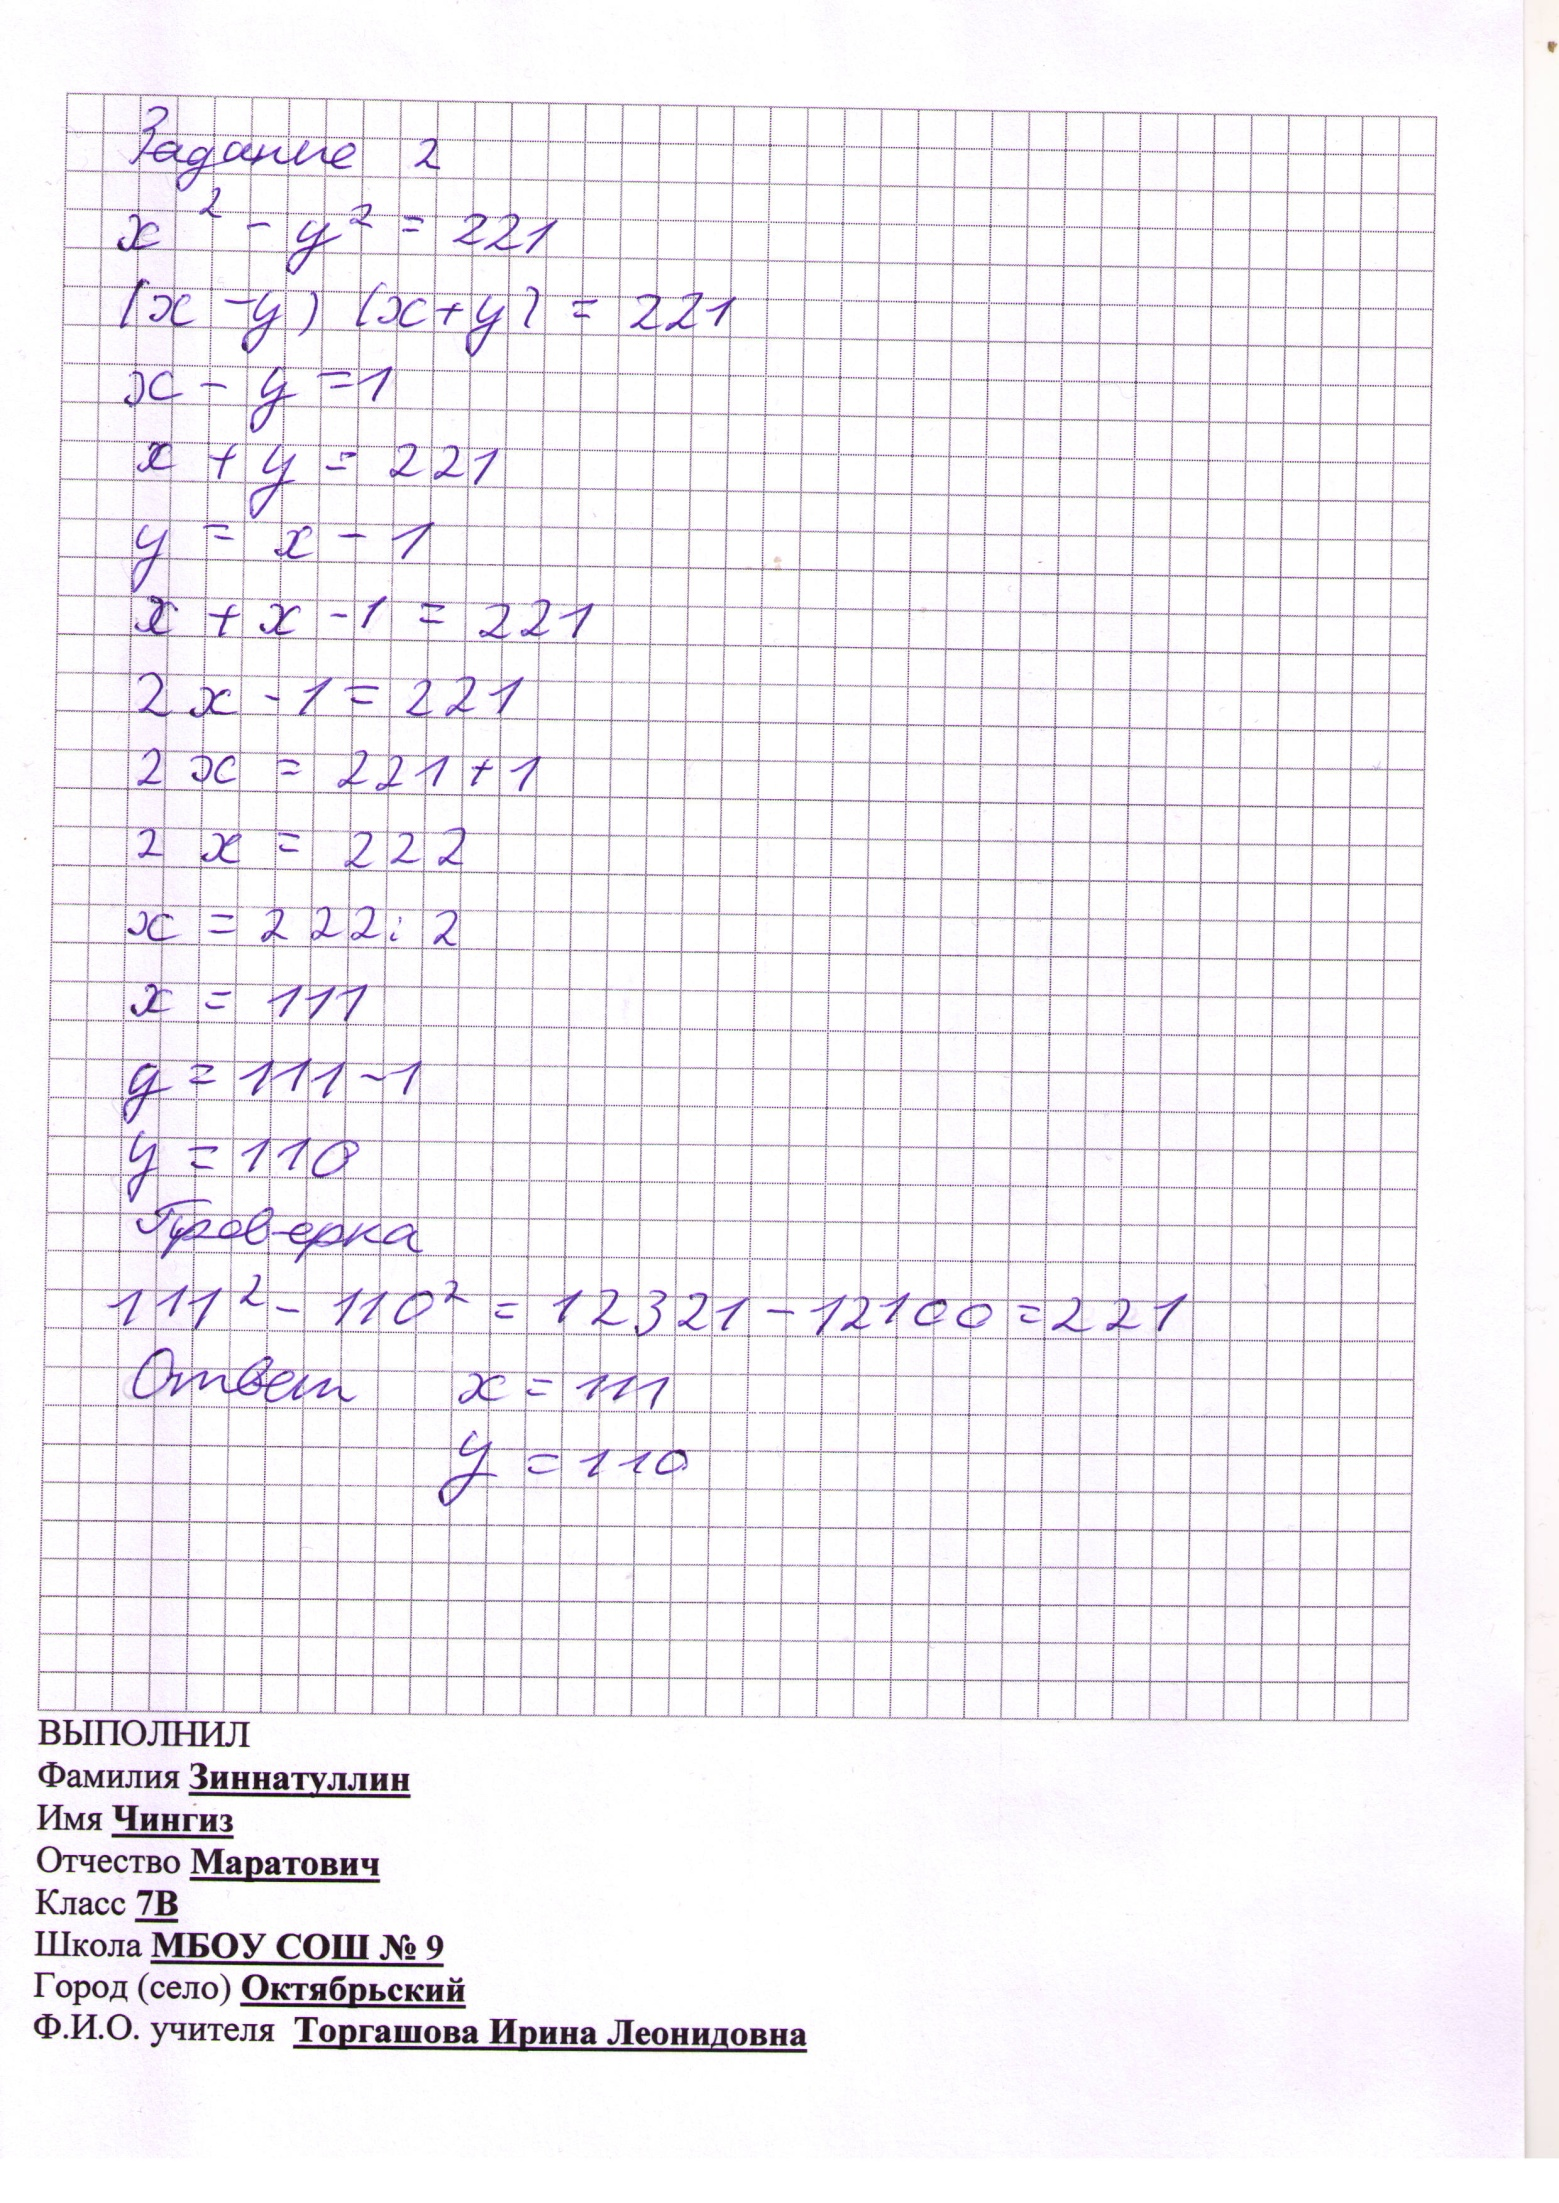 Задание 2
x² - y² = 221
(x - y) (x + y) = 221
x - y = 1
x + y = 221
y = x - 1
x + x - 1 = 221
2x - 1 = 221
2x = 221 + 1
2x = 222
x = 222 : 2
x = 111
y = 111 - 1
y = 110
Проверка
111² - 110² = 12321 - 12100 = 221
Ответ x = 111
y = 110
ВЫПОЛНИЛ
Фамилия Зиннатуллин
Имя Чингиз
Отчество Маратович
Класс 7В
Школа МБОУ СОШ № 9
Город (село) Октябрьский
Ф.И.О. учителя Торгашова Ирина Леонидовна